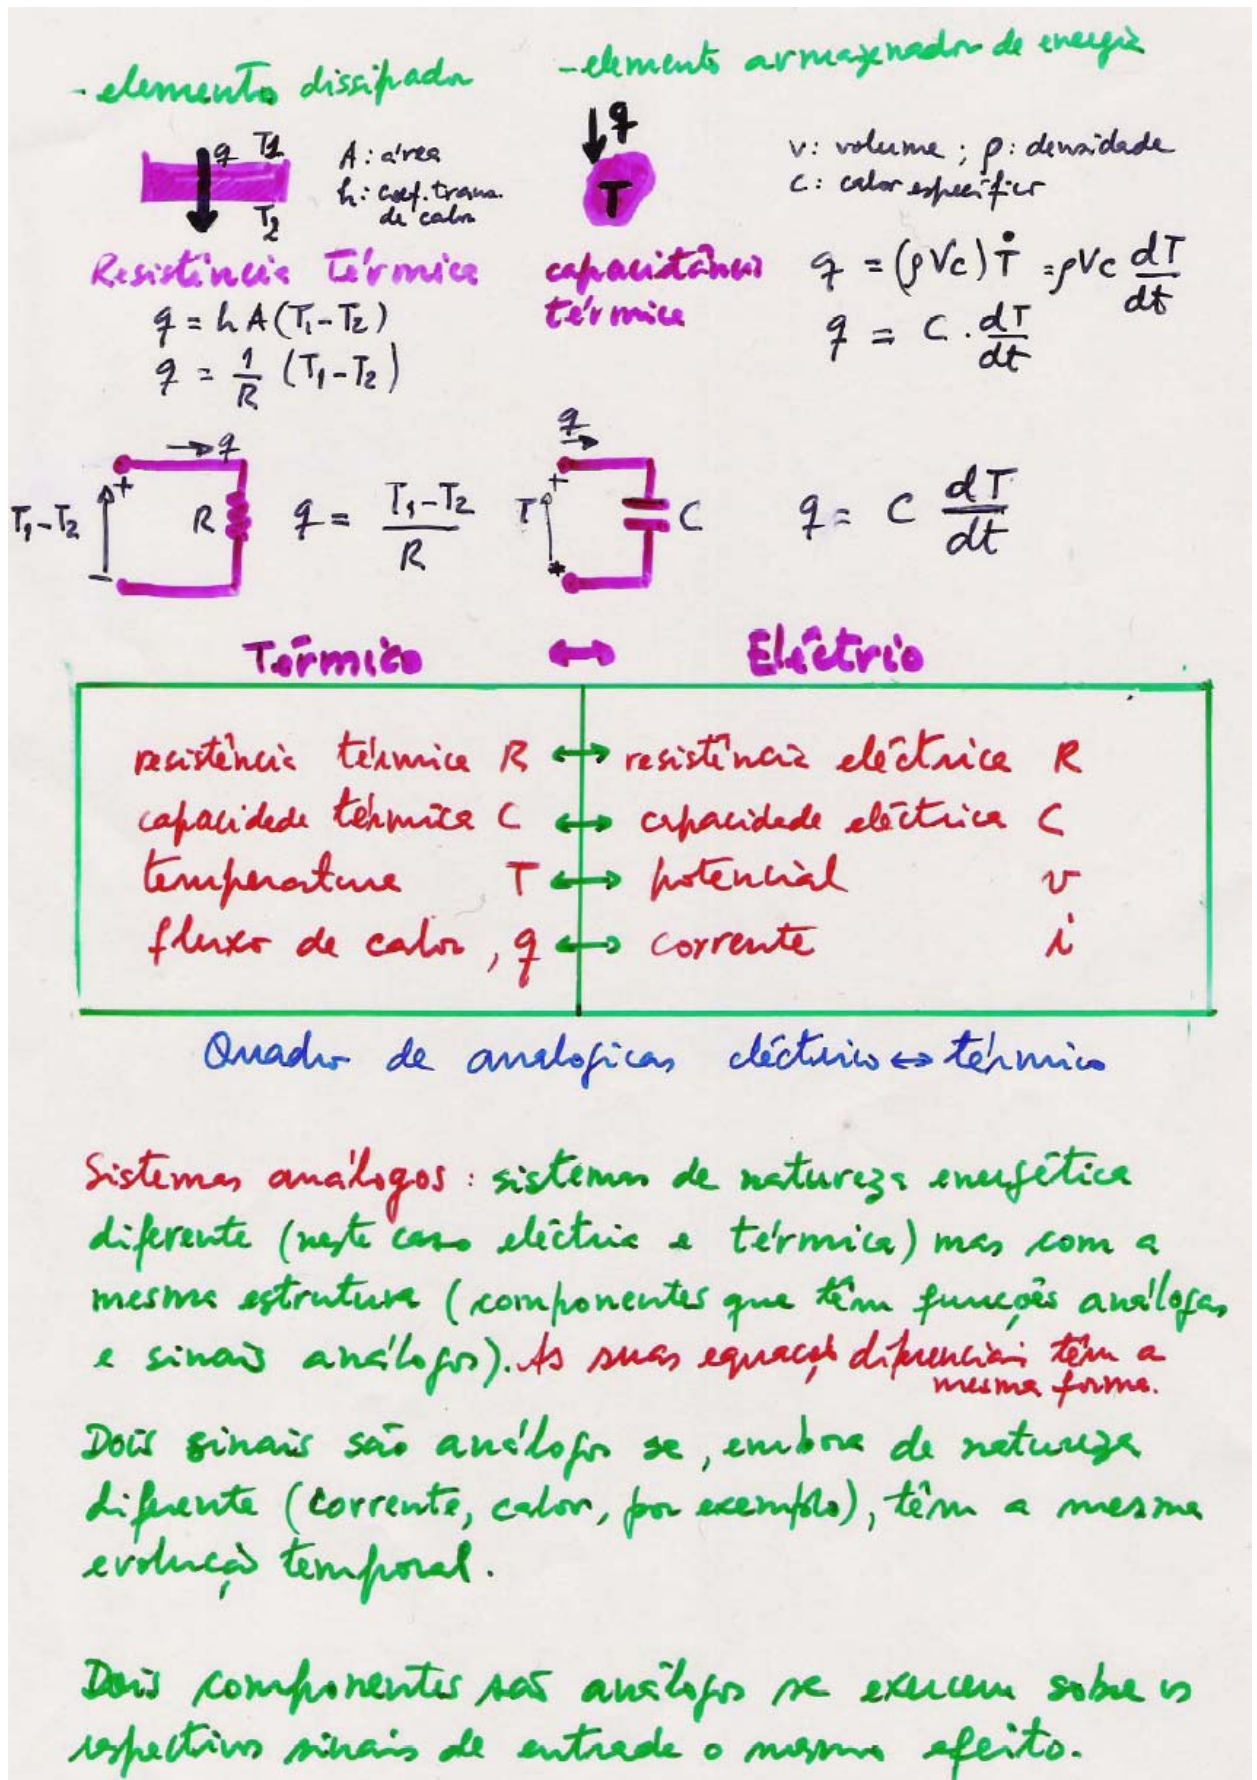 - elemento dissipador
- elemento armazenador de energia
q T1
T2
A: área
h: coef. trans.
de calor
q
T
v: volume ; ρ: densidade
c: calor específico
Resistência Térmica
q = h A (T₁-T₂)
q = 1/R (T₁-T₂)
capacitância
térmica
q = (ρVc) Ṫ = ρVc dT/dt
q = C . dT/dt
→ q
T₁-T₂
+
-
R
q = T₁-T₂/R
q →
+
T
C
q = C dT/dt
Térmico ↔ Eléctrio
resistência térmica R ↔ resistência eléctrica R
capacidade térmica C ↔ capacidade eléctrica C
temperatura T ↔ potencial v
fluxo de calor, q ↔ corrente i
Quadro de analogicas eléctrico ↔ térmico
Sistemas análogos : sistemas de natureza energética
diferente (neste caso eléctria e térmica) mas com a
mesma estrutura (componentes que têm funções análogas
e sinais análogos). As suas equações diferenciais têm a
mesma forma.
Dois sinais são análogos se, embora de natureza
diferente (corrente, calor, por exemplo), têm a mesma
evolução temporal.
Dois componentes são análogos se exercem sobre os
respectivos sinais de entrada o mesmo efeito.